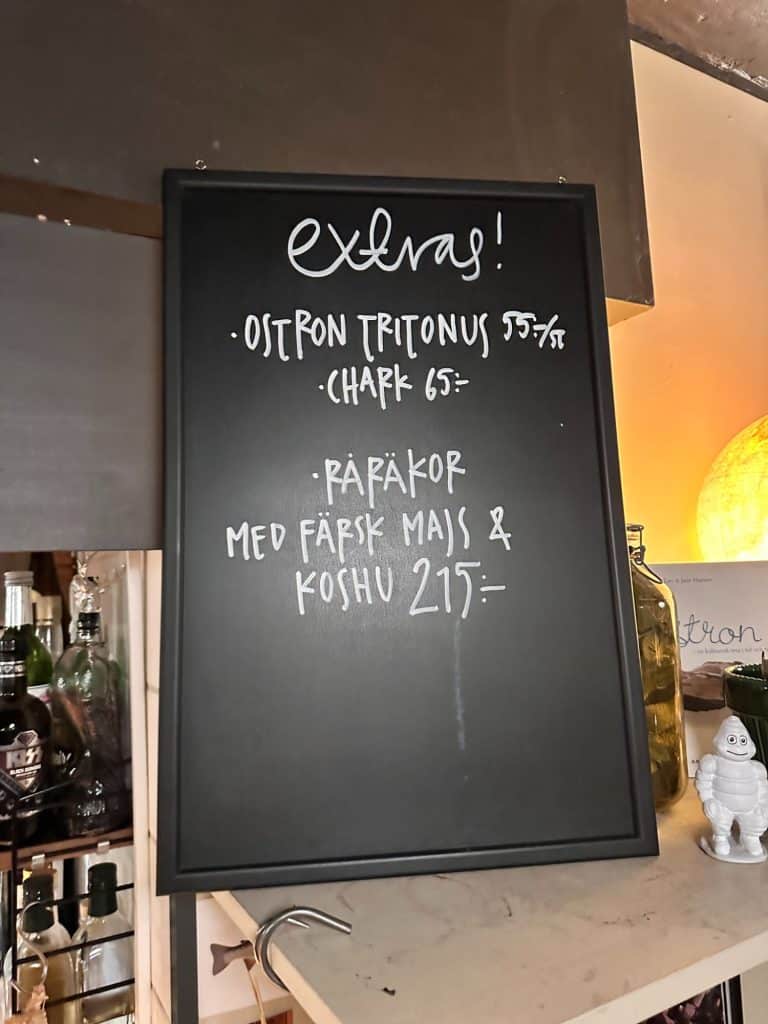 extras!
·OSTRON TRITONUS 55:-/ST
·CHARK 65:-
·RÅRÄKOR
MED FÄRSK MAJS &
KOSHU 215:-
KISS
stron